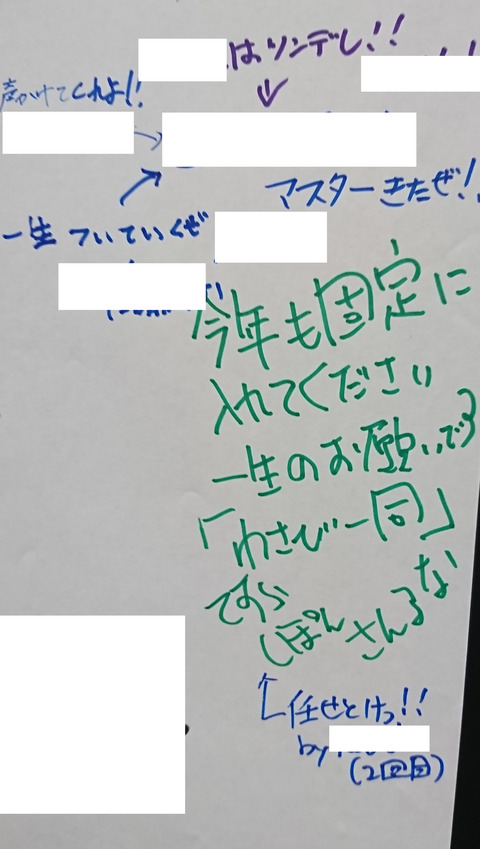 はツンデレ!!
声かけてくれよ!!
マスターきたぜ!!
一生ついていくぜ
今年も固定に
入れてください
一生のお願いです
「わさび一同」
ですら
しぽんさんろな
任せとけっ!!
by
(2回目)